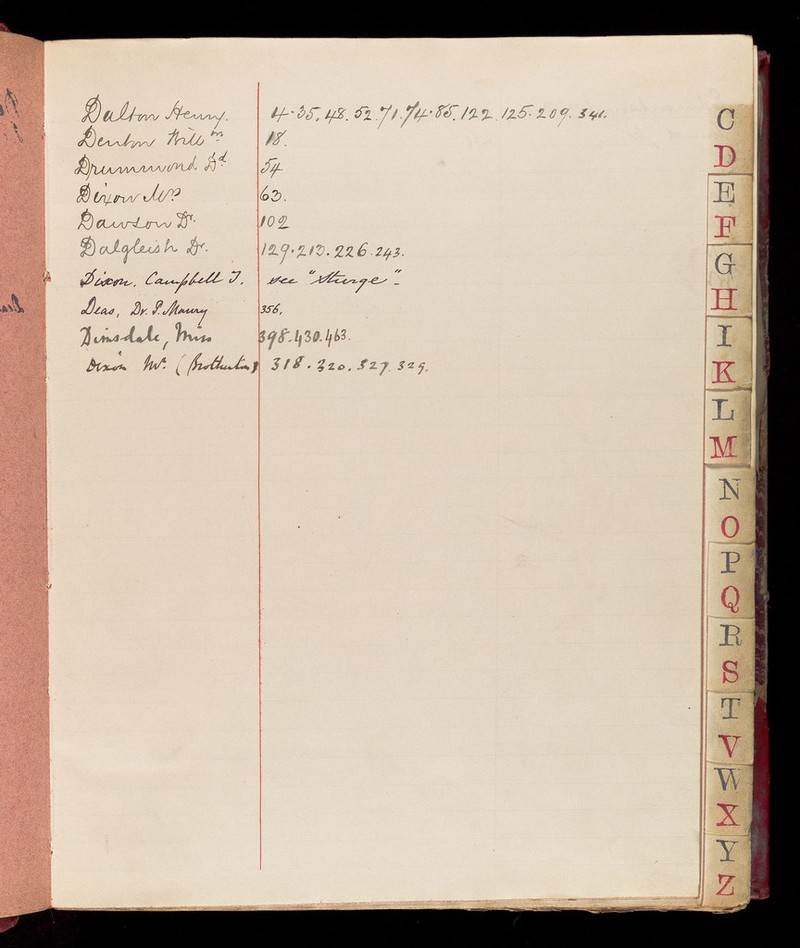 Dalton Henry. 4. 35. 48. 52. 71. 74. 85. 122. 125. 209. 341.
Denton Will^m 18.
Drummond D^d 54
Dixon M^r 63.
Dawson D^r 102
Dalgleish Dr. 129. 213. 226. 243.
Dixon, Campbell T. see "Sturge".
Deas, Dr. P. Maury 356,
Dimsdale, Miss 398. 430. 463.
Dixon M^r. (Brotherton) 318. 320. 327. 329.
C
D
E
F
G
H
I
K
L
M
N
O
P
Q
R
S
T
V
W
X
Y
Z